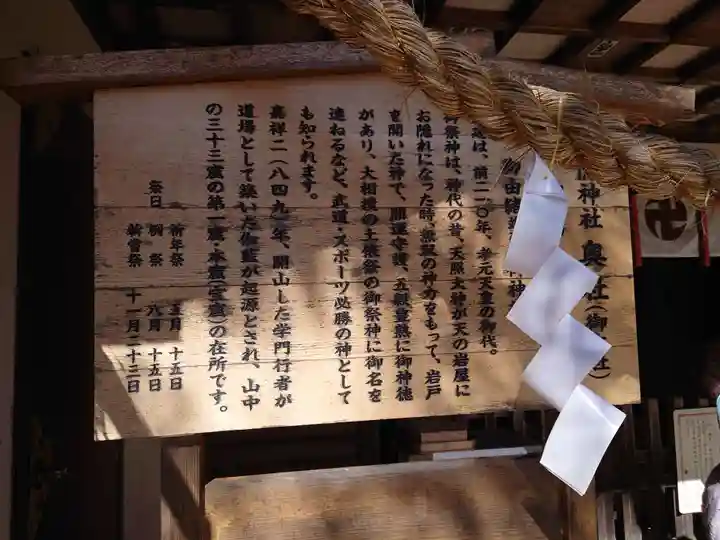 神社 奥社(御
社)
御由緒
神
は、前二一〇年、孝元天皇の御代。
御祭神は、神代の昔、天照大神が天の岩屋に
お隠れになった時、無双の神力をもって、岩戸
を開いた神で、開運守護、五穀豊熟に御神徳
があり、大相撲の土俵祭の御祭神に御名を
連ねるなど、武道・スポーツ必勝の神として
も知られます。
嘉祥二(八四九)年、開山した学門行者が
道場として築いた伽藍が起源とされ、山中
の三十三窟の第一窟・本窟(宝窟)の在所です。
祭日
祈年祭 五月 十五日
例祭 八月 十五日
新嘗祭 十一月二十三日